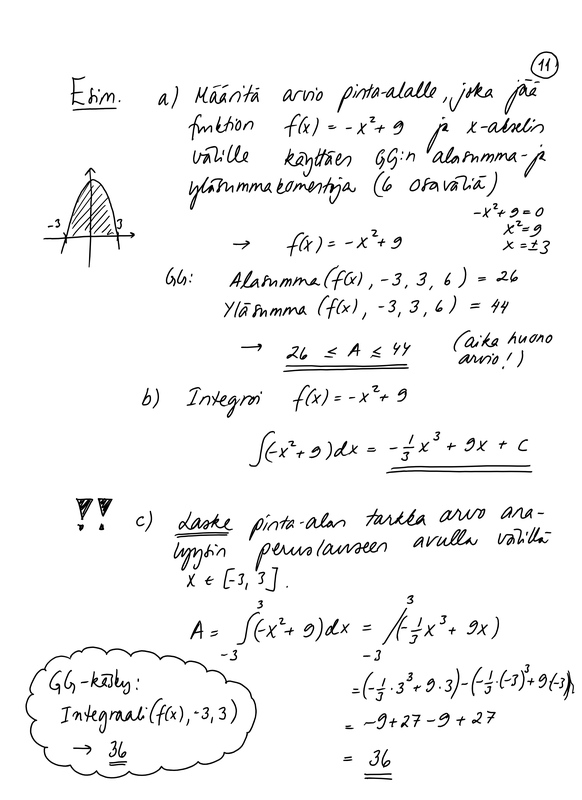 11
Esim. a) Määritä arvio pinta-alalle, joka jää
funktion f(x) = -x²+ 9 ja x-akselin
välille käyttäen GG:n alasumma- ja
yläsummakomentoja (6 osaväliä)
-3 3
-x²+9=0
x²=9
x = ±3
→ f(x) = -x²+9
GG: Alasumma(f(x), -3, 3, 6) = 26
Yläsumma (f(x), -3, 3, 6) = 44
→ 26 ≤ A ≤ 44 (aika huono
arvio!)
b) Integroi f(x) = -x²+ 9
∫(-x²+9)dx = -1/3 x³ + 9x + C
!! c) Laske pinta-alan tarkka arvo ana-
lyysin peruslauseen avulla välillä
x ∈ [-3, 3].
A = ∫₋₃³(-x²+ 9)dx = /₋₃³(-1/3 x³ + 9x)
=(-1/3·3³+9·3)-(-1/3·(-3)³+9(-3))
= -9+27-9+27
= 36
GG-käsky:
Integraali(f(x), -3, 3)
→ 36